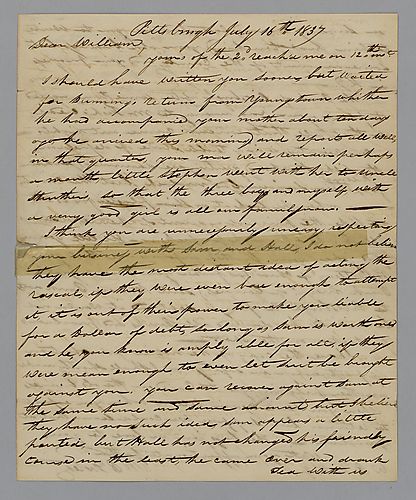 Pittsburgh July 16th 1837
Dear William
yours of the 2d reach'd me on 12th inst
I should have written you sooner but waited
for Dunnings return from Youngstown whither
he had accompanied your mother about ten days
ago he arrived this morning and reports all well
in that quarter, your ma will remain perhaps
a month, little Stephen went with her to uncle
Struthers, so that the three boys and myself with
a very good girl is all our family
I think you are unnecessarily uneasy respecting
your business with Sam and Hall, I do not believe
they have the most distant idea of acting the
rascal, if they were even base enough to attempt
it it is out of their power to make you liable
for a Dollar of debts so long as Sam is worth one
and he you know is amply able for all, if they
were mean enough to even let suit be brought
against you. you can recover against Sam at
the same time and same amount, but I believe
they have no such idea Sam appears a little
pouted, but Hall has not changed his friendly
course in the least, he came over and drank
Tea with us